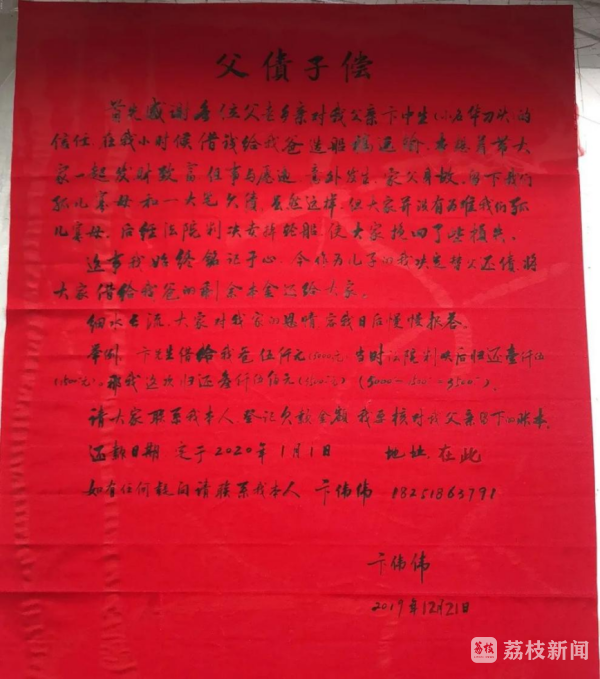 父債子偿
首先感谢各位父老乡亲对我父亲卞中生(小名华刀头)的
信任,在我小时候借钱给我爸造船搞运输,本想着带大
家一起发财致富,但事与愿违,意外发生,家父身故,留下我们
孤儿寡母和一大笔欠债。虽然这样,但大家并没有为难我们孤
儿寡母,后经法院判决卖掉轮船,使大家挽回了些损失。
这事我始终铭记于心,今作为儿子的我决定替父还债,将
大家借给我爸的剩余本金还给大家。
细水长流,大家对我家的恩情容我日后慢慢报答。
举例:卞先生借给我爸伍仟元(5000元),当时法院判决后归还壹仟伍
(1500元),那我这次归还叁仟伍佰元(3500元)(5000-1500=3500)。
请大家联系我本人登记欠款金额,我要核对我父亲留下的账本,
还款日期定于2020年1月1日 地址:在此
如有任何疑问请联系我本人 卞伟伟 18251863791
卞伟伟
2019年12月21日
荔枝 荔枝新闻